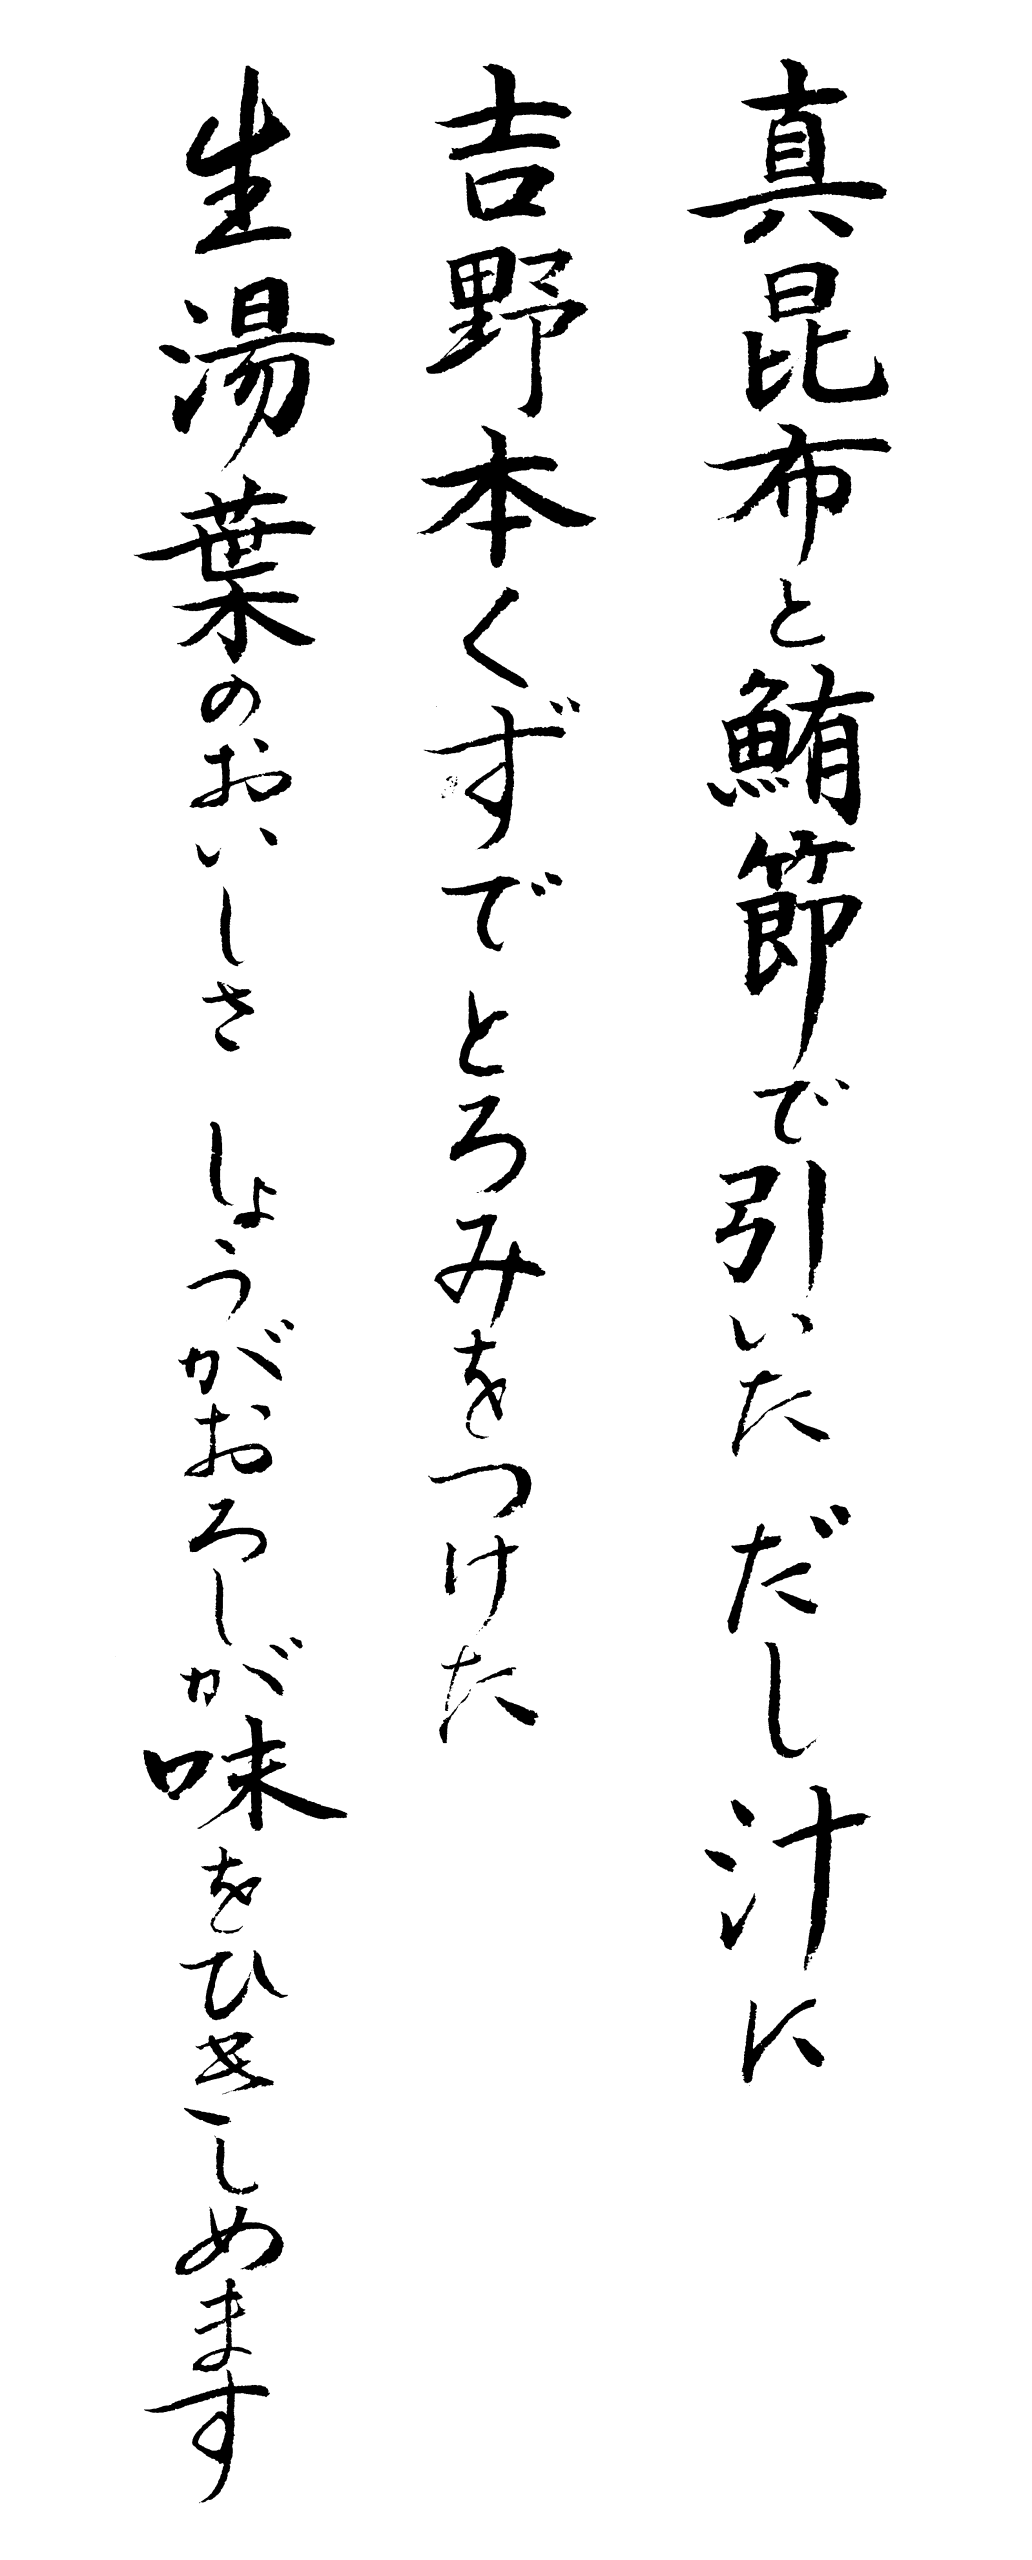 真昆布と鮪節で引いただし汁に
吉野本くずでとろみをつけた
生湯葉のおいしさ　しょうがおろしが味をひきしめます